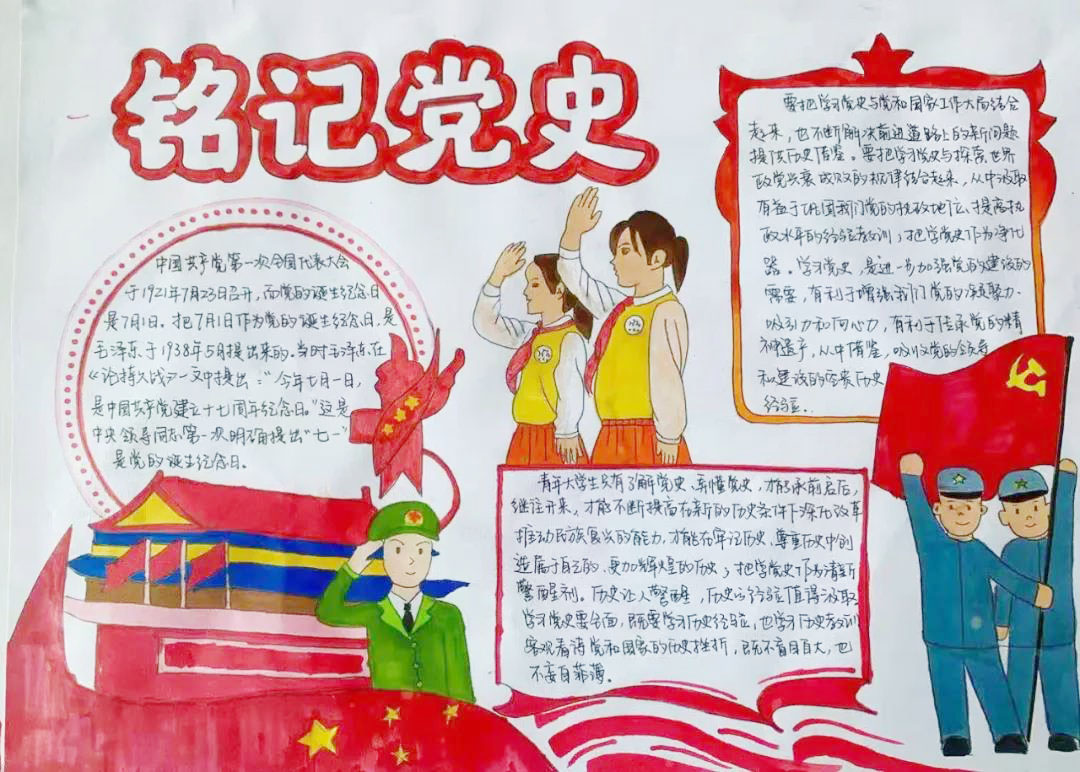 铭记党史
中国共产党第一次全国代表大会
于1921年7月23日召开,而党的诞生纪念日
是7月1日。把7月1日作为党的诞生纪念日,是
毛泽东于1938年5月提出来的。当时毛泽东在
《论持久战》一文中提出:"今年七月一日,
是中国共产党建立十七周年纪念日。"这是
中央领导同志第一次明确提出"七一"
是党的诞生纪念日。
要把学习党史与党和国家工作大局结合
起来,也不断解决前进道路上的新问题
提供历史借鉴。要把学习党史与探索世界
政党兴衰成败的规律结合起来,从中汲取
有益于巩固我们党的执政地位、提高执
政水平的经验教训;把学党史作为净化
器。学习党史,是进一步加强党的建设的
需要,有利于增强我们党的凝聚力、
吸引力和向心力,有利于传承党的精
神遗产,从中借鉴,吸收党的领导
和建设的宝贵历史
经验。
青年大学生只有了解党史、弄懂党史,才能承前启后,
继往开来,才能不断提高在新的历史条件下深历改革
推动民族复兴的能力,才能在牢记历史、尊重历史中创
造属于自己的、更加辉煌的历史;把学党史作为清新
警醒剂。历史让人警醒,历史的经验值得汲取
学习党史要全面,既要学习历史经验,也学习历史教训
客观看待党和国家的历史挫折,既不盲目自大,也
不妄自菲薄。